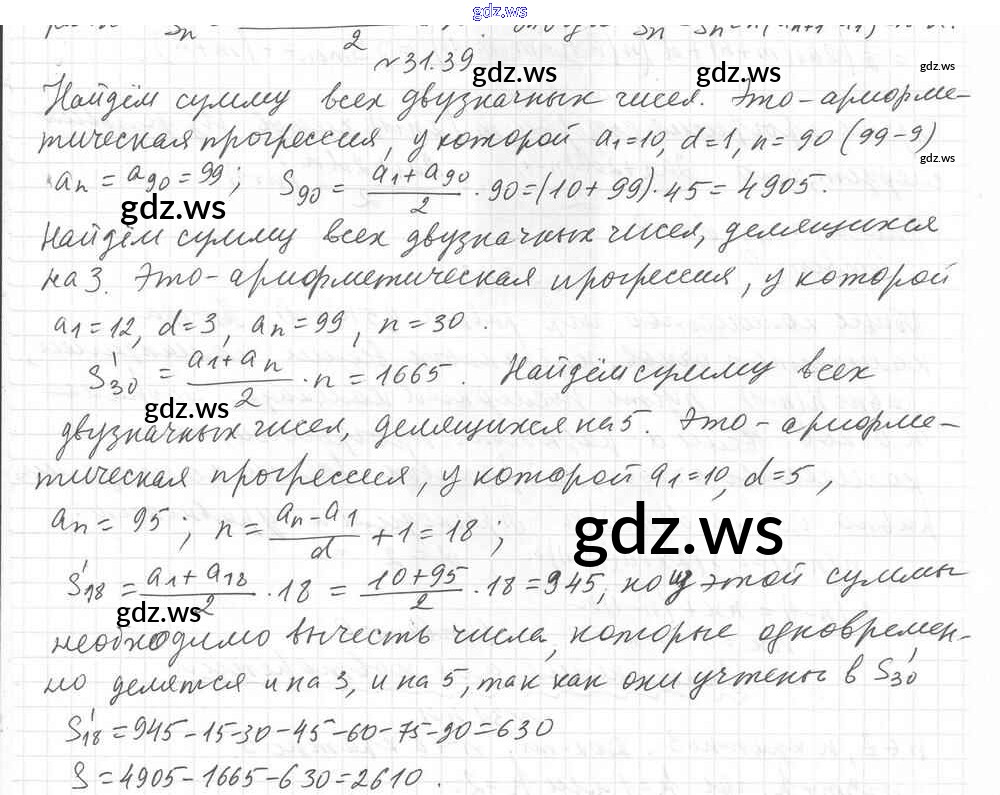 gdz.ws
2
№31.39
gdz.ws gdz.ws gdz.ws
Найдём сумму всех двузначных чисел. Это - арифме-
тическая прогрессия, у которой a₁=10, d=1, n=90 (99-9)
gdz.ws
aₙ = a₉₀ = 99; S₉₀ = (a₁+a₉₀)/2 · 90 = (10+99)·45 = 4905.
gdz.ws
Найдём сумму всех двузначных чисел, делящихся
на 3. Это - арифметическая прогрессия, у которой
a₁=12, d=3, aₙ=99, n=30.
S'₃₀ = (a₁+aₙ)/2 · n = 1665. Найдём сумму всех
gdz.ws
двузначных чисел, делящихся на 5. Это - арифме-
тическая прогрессия, у которой a₁=10, d=5,
aₙ = 95; n = (aₙ-a₁)/d + 1 = 18;
gdz.ws
S'₁₈ = (a₁+a₁₈)/2 · 18 = (10+95)/2 · 18 = 945, но из этой суммы
gdz.ws
необходимо вычесть числа, которые одновремен-
но делятся и на 3, и на 5, так как они учтены в S'₃₀
S'₁₈ = 945-15-30-45-60-75-90=630
S = 4905-1665-630=2610.